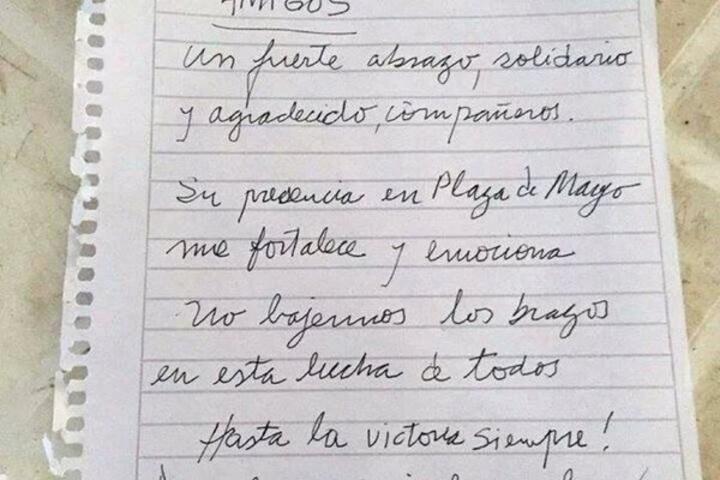 AMIGOS
Un fuerte abrazo, solidario
y agradecido, compañeros.
Su presencia en Plaza de Mayo
me fortalece y emociona
No bajemos los brazos
en esta lucha de todos
Hasta la victoria siempre!